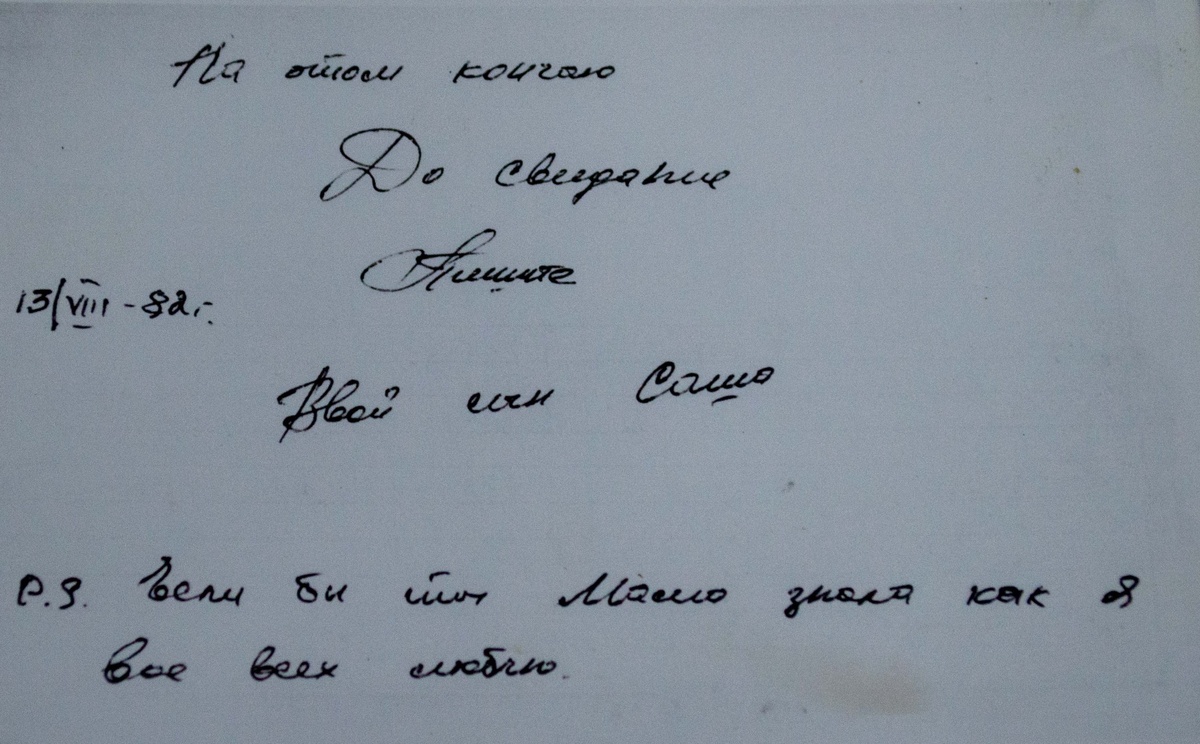 На этом кончаю
До свидание
Пишите
13/VIII-82г.
Твой сын Саша
P.S. Если бы ты Мама знала как я
вас всех люблю.